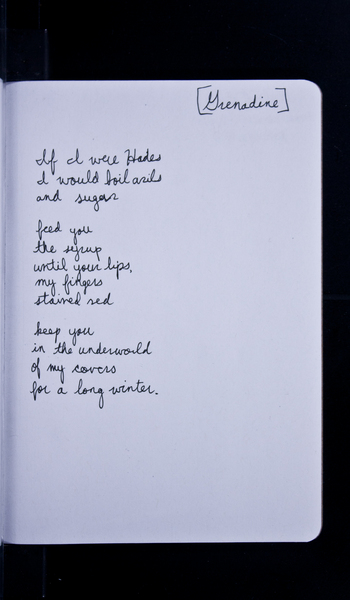 [Grenadine]
If I were Hades
I would boil arils
and sugar
feed you
the syrup
until your lips,
my fingers
stained red
keep you
in the underworld
of my covers
for a long winter.